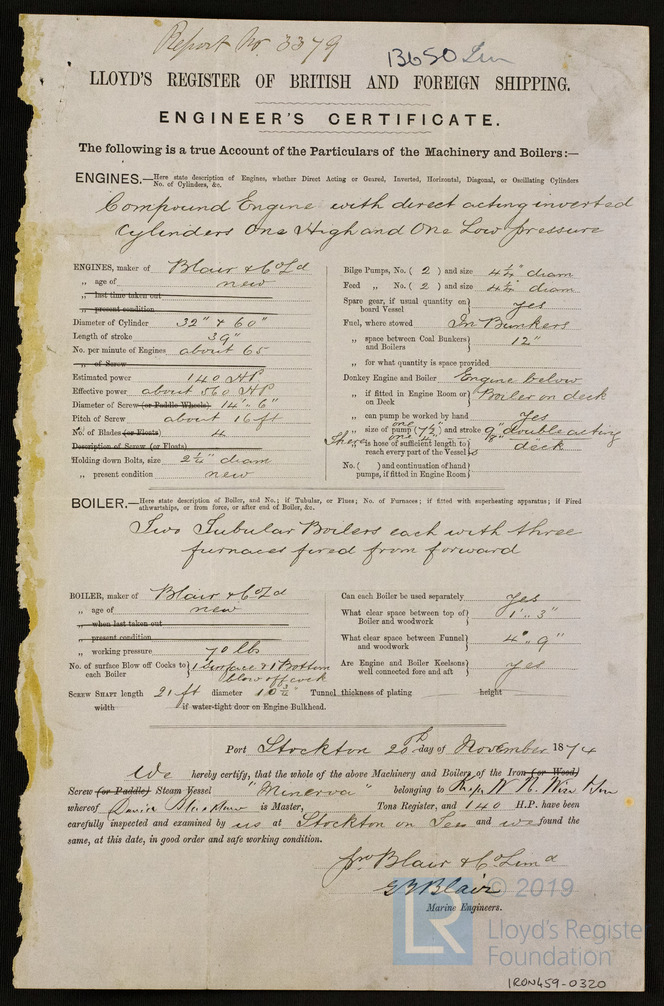 Report No. 3379
13650 Irn
LLOYD'S REGISTER OF BRITISH AND FOREIGN SHIPPING.
ENGINEER'S CERTIFICATE.
The following is a true Account of the Particulars of the Machinery and Boilers:—
ENGINES.—Here state description of Engines, whether Direct Acting or Geared, Inverted, Horizontal, Diagonal, or Oscillating Cylinders
No. of Cylinders, &c.
Compound Engine with direct acting inverted
Cylinders One High and One Low pressure
ENGINES, maker of Blair & Co Ld
„ age of new
„ last time taken out
„ present condition
Diameter of Cylinder 32" & 60"
Length of stroke 39"
No. per minute of Engines about 65
„ of Screw
Estimated power 140 HP
Effective power about 560 HP
Diameter of Screw (or Paddle Wheels) 14'-6"
Pitch of Screw about 16 ft
No. of Blades (or Floats) 4
Description of Screw (or Floats)
Holding down Bolts, size 2¼" diam
„ present condition new
Bilge Pumps, No. ( 2 ) and size 4¼" diam
Feed „ No. ( 2 ) and size 4¼" diam
Spare gear, if usual quantity on board Vessel yes
Fuel, where stowed In Bunkers
„ space between Coal Bunkers and Boilers 12"
„ for what quantity is space provided
Donkey Engine and Boiler Engine below
„ if fitted in Engine Room or on Deck Boiler on deck
„ can pump be worked by hand Yes
„ size of pump (one 7½") and stroke 9" double acting
„ is hose of sufficient length to reach every part of the Vessel deck
No. ( ) and continuation of hand pumps, if fitted in Engine Room
BOILER.—Here state description of Boiler, and No.; if Tubular, or Flues; No. of Furnaces; if fitted with superheating apparatus; if Fired
athwartships, or from force, or after end of Boiler, &c.
Two Tubular Boilers each with three
furnaces fired from forward
BOILER, maker of Blair & Co Ld
„ age of new
„ when last taken out
„ present condition
„ working pressure 70 lbs
No. of surface Blow off Cocks to each Boiler 1 Surface & 1 Bottom
blow off cock
Can each Boiler be used separately Yes
What clear space between top of Boiler and woodwork 1'.. 3"
What clear space between Funnel and woodwork 4".. 9"
Are Engine and Boiler Keelsons well connected fore and aft yes
SCREW SHAFT length 21 ft diameter 10 3/12" Tunnel thickness of plating height
width if water-tight door on Engine Bulkhead.
Port Stockton 20th day of November 1874
We hereby certify, that the whole of the above Machinery and Boilers of the Iron (or Wood)
Screw (or Paddle) Steam Vessel "Minerva" belonging to
whereof David is Master, Tons Register, and 140 H.P. have been
carefully inspected and examined by us at Stockton on Tees and we found the
same, at this date, in good order and safe working condition.
pro Blair & Co Limd
G Y Blair
Marine Engineers.
© 2019
LR
Lloyd's Register
Foundation
IRON459-0320